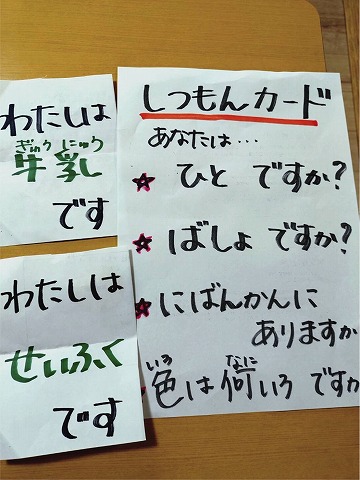 わたしは
ぎゅうにゅう
牛乳
です
わたしは
せいふく
です
しつもんカード
あなたは…
★ ひと ですか?
★ ばしょ ですか?
★ にばんかんに
ありますか
いろ なに
色は何いろ ですか